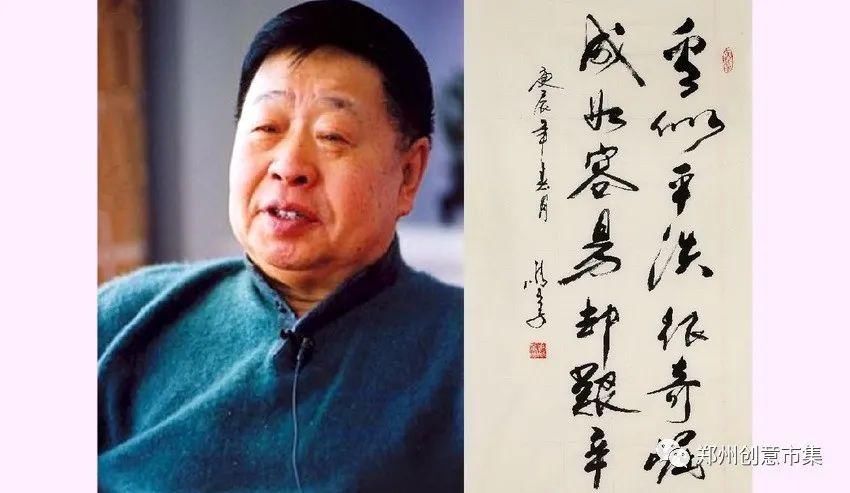 看似平淡很奇崛
成如容易却艱辛
庚辰年春月
郑州创意市集